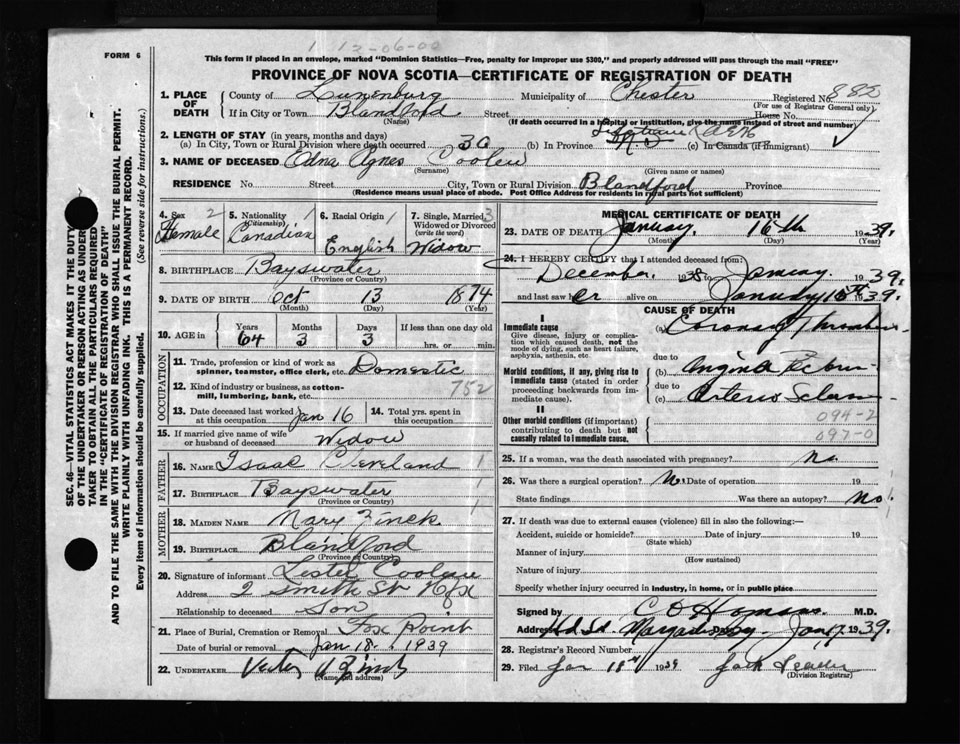 1 12-06-00
FORM 6
This form if placed in an envelope, marked "Dominion Statistics—Free, penalty for improper use $300," and properly addressed will pass through the mail "FREE"
PROVINCE OF NOVA SCOTIA—CERTIFICATE OF REGISTRATION OF DEATH
1. PLACE OF DEATH { County of Lunenburg Municipality of Chester Registered No. 882
(For use of Registrar General only)
If in City or Town Blandford Street House No.
(Name) (If death occurred in a hospital or institution, give the name instead of street and number)
2. LENGTH OF STAY (in years, months and days)
(a) In City, Town or Rural Division where death occurred 30 (b) In Province (c) In Canada (if immigrant)
3. NAME OF DECEASED Edna Agnes Coolen
(Surname) (Given name or names)
RESIDENCE No. Street City, Town or Rural Division Blandford Province
(Residence means usual place of abode. Post Office Address for residents in rural parts not sufficient)
4. Sex 2 Female
5. Nationality (Citizenship) 1 Canadian
6. Racial Origin 1 English
7. Single, Married, Widowed or Divorced (write the word) 3 Widow
8. BIRTHPLACE Bayswater
(Province or Country)
9. DATE OF BIRTH Oct 13 1874
(Month) (Day) (Year)
10. AGE in { Years 64 Months 3 Days 3 If less than one day hrs. or min.
OCCUPATION
11. Trade, profession or kind of work as spinner, teamster, office clerk, etc. Domestic
12. Kind of industry or business, as cotton-mill, lumbering, bank, etc. 752
13. Date deceased last worked at this occupation Jan 16
14. Total yrs. spent in this occupation
15. If married give name of wife or husband of deceased Widow
FATHER
16. NAME Isaac Cleveland 1
17. BIRTHPLACE Bayswater 1
(Province or Country)
MOTHER
18. MAIDEN NAME Mary Zinck
19. BIRTHPLACE Blandford
(Province or Country)
20. Signature of informant Lester Coolen
Address 2 Smith St Hfx
Relationship to deceased Son
21. Place of Burial, Cremation or Removal Fox Point
Date of burial or removal Jan 18. 1939
22. UNDERTAKER Zinck
(Name and address)
MEDICAL CERTIFICATE OF DEATH
23. DATE OF DEATH January 16th 1939.
(Month) (Day) (Year)
24. I HEREBY CERTIFY that I attended deceased from:
December 1938 to January 1939.
and last saw her alive on January 1939.
CAUSE OF DEATH
I
Immediate cause
Give disease, injury or complication which caused death, not the mode of dying, such as heart failure, asphyxia, asthenia, etc.
(a) Coronary
due to
Morbid conditions, if any, giving rise to immediate cause (stated in order proceeding backwards from immediate cause).
(b) Angina
due to
(c) Arterio
II
Other morbid conditions (if important) contributing to death but not causally related to immediate cause.
094-2
097-0
25. If a woman, was the death associated with pregnancy? no
26. Was there a surgical operation? No Date of operation 19
State findings Was there an autopsy? no
27. If death was due to external causes (violence) fill in also the following:—
Accident, suicide or homicide? Date of injury 19
(State which)
Manner of injury
(How sustained)
Nature of injury
Specify whether injury occurred in industry, in home, or in public place
Signed by C O Homans M.D.
Address Date Jan 17 1939.
28. Registrar's Record Number
29. Filed Jan 18th 1939 Jack
(Division Registrar)
SEC. 46—VITAL STATISTICS ACT MAKES IT THE DUTY
OF THE UNDERTAKER OR PERSON ACTING AS UNDERTAKER TO OBTAIN ALL THE PARTICULARS REQUIRED
IN THE "CERTIFICATE OF REGISTRATION OF DEATH"
AND TO FILE THE SAME WITH THE DIVISION REGISTRAR WHO SHALL ISSUE THE BURIAL PERMIT.
WRITE PLAINLY WITH UNFADING INK. THIS IS A PERMANENT RECORD.
Every item of information should be carefully supplied. (See reverse side for instructions.)